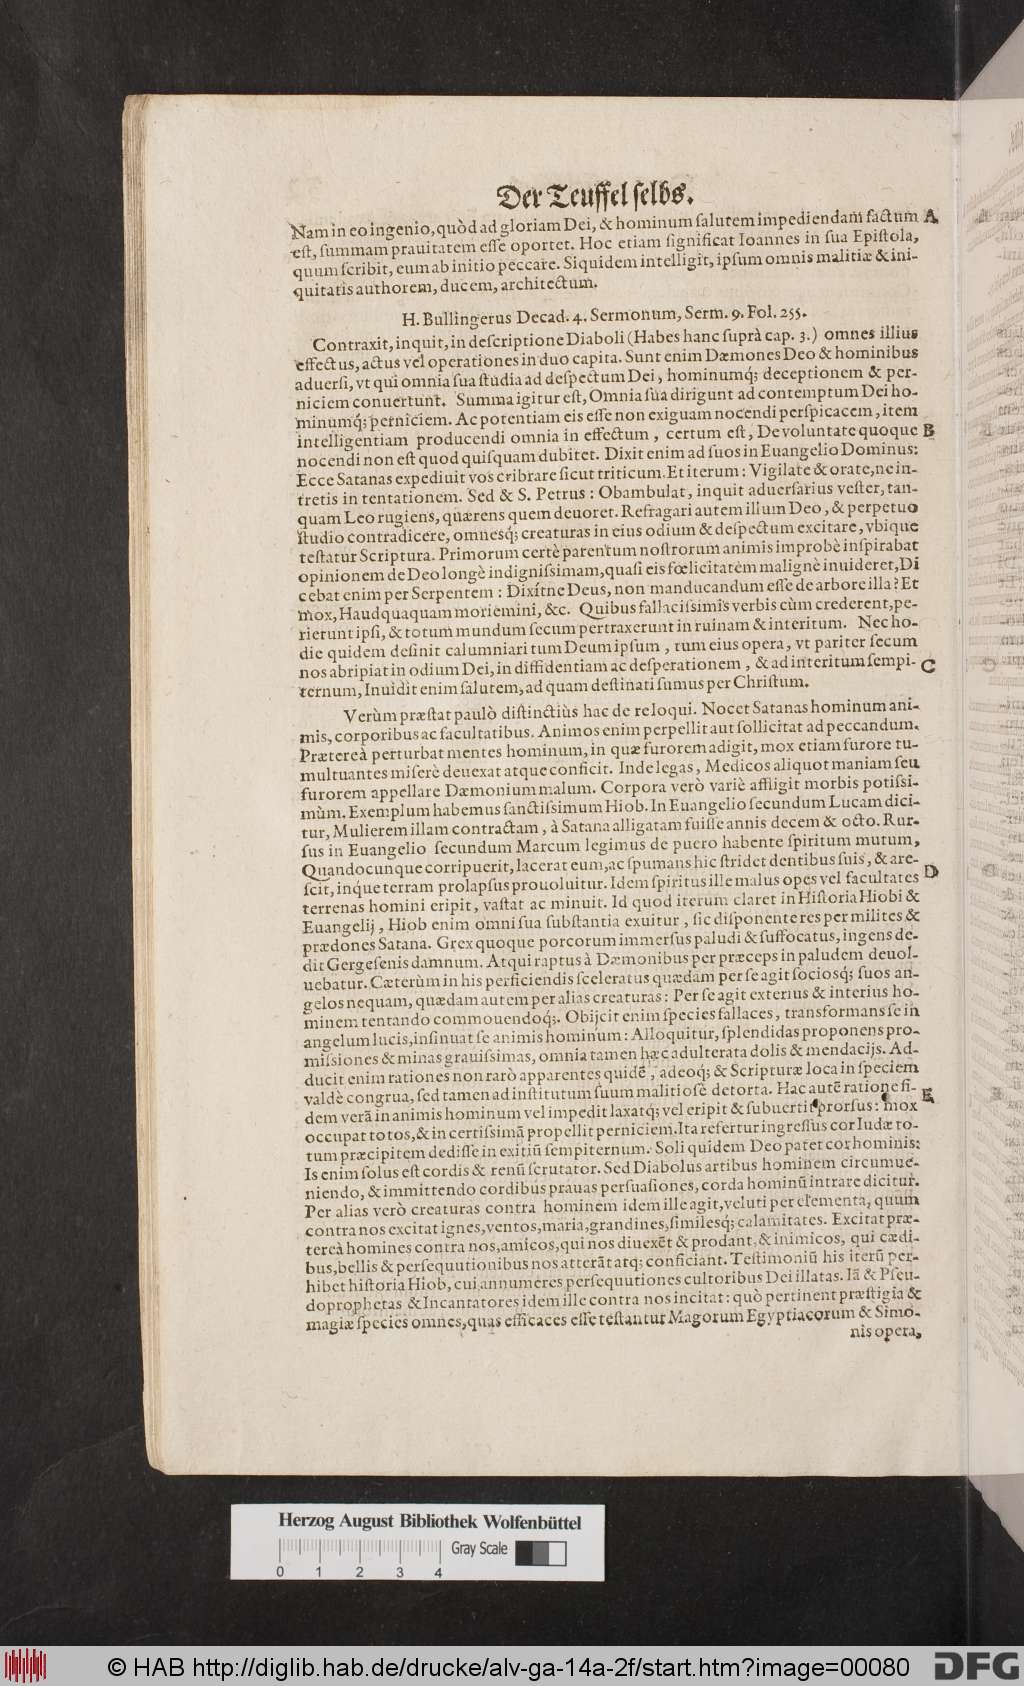 Der Teuffel ſelbs.
Nam in eo ingenio, quòd ad gloriam Dei, & hominum ſalutem impediendam̄ factum A
eſt, ſummam prauitatem eſſe oportet. Hoc etiam ſignificat Ioannes in ſua Epiſtola,
quum ſcribit, eum ab initio peccare. Siquidem intelligit, ipſum omnis malitiæ & ini-
quitatis authorem, ducem, architectum.
H. Bullingerus Decad. 4. Sermonum, Serm. 9. Fol. 255.
Contraxit, inquit, in deſcriptione Diaboli (Habes hanc ſuprà cap. 3.) omnes illius
effectus, actus vel operationes in duo capita. Sunt enim Dæmones Deo & hominibus
aduerſi, vt qui omnia ſua ſtudia ad deſpectum Dei, hominumq́; deceptionem & per-
niciem conuertunt. Summa igitur eſt, Omnia ſua dirigunt ad contemptum Dei ho-
minumq́; perniciem. Ac potentiam eis eſſe non exiguam nocendi perſpicacem, item
intelligentiam producendi omnia in effectum, certum eſt, De voluntate quoque B
nocendi non eſt quod quiſquam dubitet. Dixit enim ad ſuos in Euangelio Dominus:
Ecce Satanas expediuit vos cribrare ſicut triticum. Et iterum: Vigilate & orate, ne in-
tretis in tentationem. Sed & S. Petrus: Obambulat, inquit aduerſarius veſter, tan-
quam Leo rugiens, quærens quem deuoret. Refragari autem illum Deo, & perpetuo
ſtudio contradicere, omnesq́; creaturas in eius odium & deſpectum excitare, vbique
teſtatur Scriptura. Primorum certè parentum noſtrorum animis improbè inſpirabat
opinionem de Deo longè indigniſsimam, quaſi eis fœlicitatem malignè inuideret, Di
cebat enim per Serpentem: Dixítne Deus, non manducandum eſſe de arbore illa? Et
mox, Haudquaquam moriemini, &c. Quibus fallaciſsimis verbis cùm crederent, pe-
rierunt ipſi, & totum mundum ſecum pertraxerunt in ruinam & interitum. Nec ho-
die quidem deſinit calumniari tum Deum ipſum, tum eius opera, vt pariter ſecum
nos abripiat in odium Dei, in diffidentiam ac deſperationem, & ad interitum ſempi- C
ternum, Inuidit enim ſalutem, ad quam deſtinati ſumus per Chriſtum.
Verùm præſtat paulò diſtinctiùs hac de re loqui. Nocet Satanas hominum ani-
mis, corporibus ac facultatibus. Animos enim perpellit aut ſollicitat ad peccandum.
Prætereà perturbat mentes hominum, in quæ furorem adigit, mox etiam furore tu-
multuantes miſerè deuexat atque conficit. Inde legas, Medicos aliquot maniam ſeu
furorem appellare Dæmonium malum. Corpora verò variè affligit morbis potiſsi-
mùm. Exemplum habemus ſanctiſsimum Hiob. In Euangelio ſecundum Lucam dici-
tur, Mulierem illam contractam, à Satana alligatam fuiſſe annis decem & octo. Rur-
ſus in Euangelio ſecundum Marcum legimus de puero habente ſpiritum mutum,
Quandocunque corripuerit, lacerat eum, ac ſpumans hic ſtridet dentibus ſuis, & are-
ſcit, inque terram prolapſus prouoluitur. Idem ſpiritus ille malus opes vel facultates D
terrenas homini eripit, vaſtat ac minuit. Id quod iterum claret in Hiſtoria Hiobi &
Euangelij, Hiob enim omni ſua ſubſtantia exuitur, ſic diſponente res per milites &
prædones Satana. Grex quoque porcorum immerſus paludi & ſuffocatus, ingens de-
dit Gergeſenis damnum. Atqui raptus à Dæmonibus per præceps in paludem deuol-
uebatur. Cæterùm in his perficiendis ſceleratus quædam per ſe agit ſociosq́; ſuos an-
gelos nequam, quædam autem per alias creaturas: Per ſe agit exterius & interius ho-
minem tentando commouendoq́;. Obijcit enim ſpecies fallaces, transformans ſe in
angelum lucis, inſinuat ſe animis hominum: Alloquitur, ſplendidas proponens pro-
miſsiones & minas grauiſsimas, omnia tamen hæc adulterata dolis & mendacijs. Ad-
ducit enim rationes non rarò apparentes quidē, adeoq́; & Scripturæ loca in ſpeciem
valdè congrua, ſed tamen ad inſtitutum ſuum malitioſè detorta. Hac autē ratione fi- E
dem verā in animis hominum vel impedit laxatq́; vel eripit & ſubuertit prorſus: mox
occupat totos, & in certiſsimā propellit perniciem. Ita refertur ingreſſus cor Iudæ to-
tum præcipitem dediſſe in exitiū ſempiternum. Soli quidem Deo patet cor hominis:
Is enim ſolus eſt cordis & renū ſcrutator. Sed Diabolus artibus hominem circumue-
niendo, & immittendo cordibus prauas perſuaſiones, corda hominū intrare dicitur.
Per alias verò creaturas contra hominem idem ille agit, veluti per elementa, quum
contra nos excitat ignes, ventos, maria, grandines, ſimilesq́; calamitates. Excitat præ-
tereà homines contra nos, amicos, qui nos diuexēt & prodant, & inimicos, qui cædi-
bus, bellis & perſequutionibus nos atterāt atq́; conficiant. Teſtimoniū his iterū per-
hibet hiſtoria Hiob, cui annumeres perſequutiones cultoribus Dei illatas. Iā & Pſeu-
doprophetas & Incantatores idem ille contra nos incitat: quò pertinent præſtigia &
magiæ ſpecies omnes, quas efficaces eſſe teſtantur Magorum Egyptiacorum & Simo-
nis opera,
Herzog August Bibliothek Wolfenbüttel
Gray Scale
0 1 2 3 4
© HAB http://diglib.hab.de/drucke/alv-ga-14a-2f/start.htm?image=00080 DFG